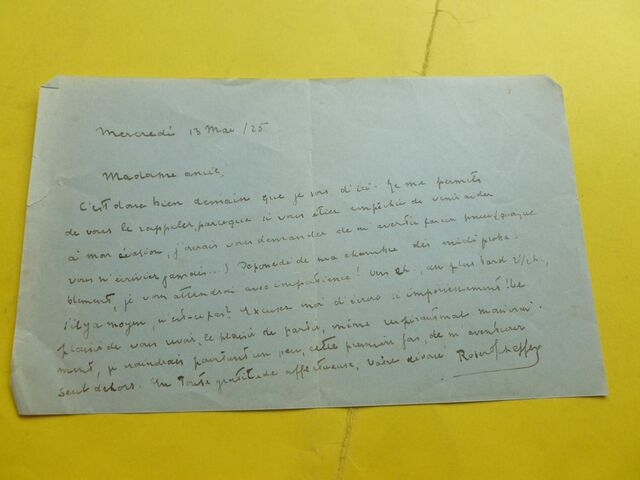 Mercredi 13 Mai /25
Madame amie,
C'est donc bien demain que je sors d'ici. Je me permets
de vous le rappeler parceque si vous étiez empêchée de venir aider
à mon évasion, j'aurais à vous demander de m'avertir par un pneu (puisque
vous n'écrivez jamais...) Dépossédé de ma chambre dès midi proba-
blement, je vous attendrai avec impatience! Vers 2h, au plus tard 2 1/2h,
s'il y a moyen, n'est-ce pas? Excusez moi d'être si impressement! Le
plaisir de vous revoir, le plaisir de partir, même
ment, je craindrais pourtant un peu, cette première fois, de m'aventurer
seul dehors. En toute gratitude affectueuse, votre dévoué Robert Scheffer